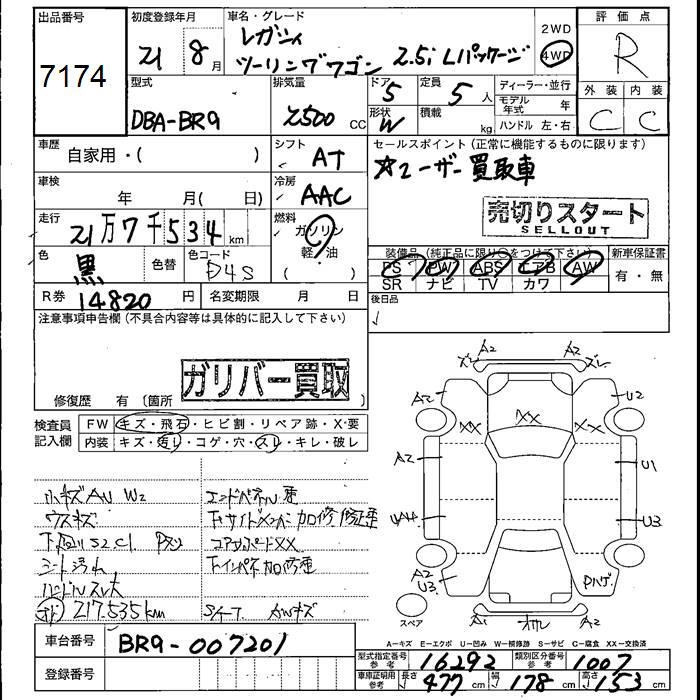 出品番号
7174
初度登録年月
21 8月
車名・グレード
レガシィ
ツーリングワゴン 2.5i Lパッケージ
2WD
4WD
評価点
R
外装 内装
C C
型式
DBA-BR9
排気量
2500 CC
ドア 5
形状 W
定員 5人
積載 kg
ディーラー・並行
モデル年式 年
ハンドル 左・右
車歴
自家用・( )
シフト
AT
セールスポイント(正常に機能するものに限ります)
☆ユーザー買取車
売切りスタート
SELLOUT
車検
年 月( 日)
冷房
AAC
走行
21万7千534km
燃料
ガソリン
軽・油
色
黒
色替
色コード
D4S
装備品(純正品に限り○をつけて下さい)
PS PW ABS エアB AW
SR ナビ TV カワ
新車保証書
有・無
R券 14820円
名変期限 月 日
後日品
注意事項申告欄(不具合内容等は具体的に記入して下さい)
ガリバー買取
修復歴 有〔箇所
検査員記入欄
FW キズ・飛石・ヒビ割・リペア跡・X・要
内装 キズ・汚レ・コゲ・穴・スレ・キレ・破レ
小キズ AU W2
ウスキズ
シート汚れ
ハンドルスレ大
217.535km
エンドパネル歪
コアサポートXX
下インパネ加修歪
A2 A2
A2 U2
XX XX XX
A2 U1
U3
A2
U3
A1 A2
スペア
A-キズ E-エクボ U-凹み W-補修跡 S-サビ C-腐食 XX-交換済
車台番号 BR9-007201
登録番号
型式指定番号 参考 16292
類別区分番号 参考 1007
車庫証明用 参考 長さ 477cm 幅 178cm 高さ 153cm